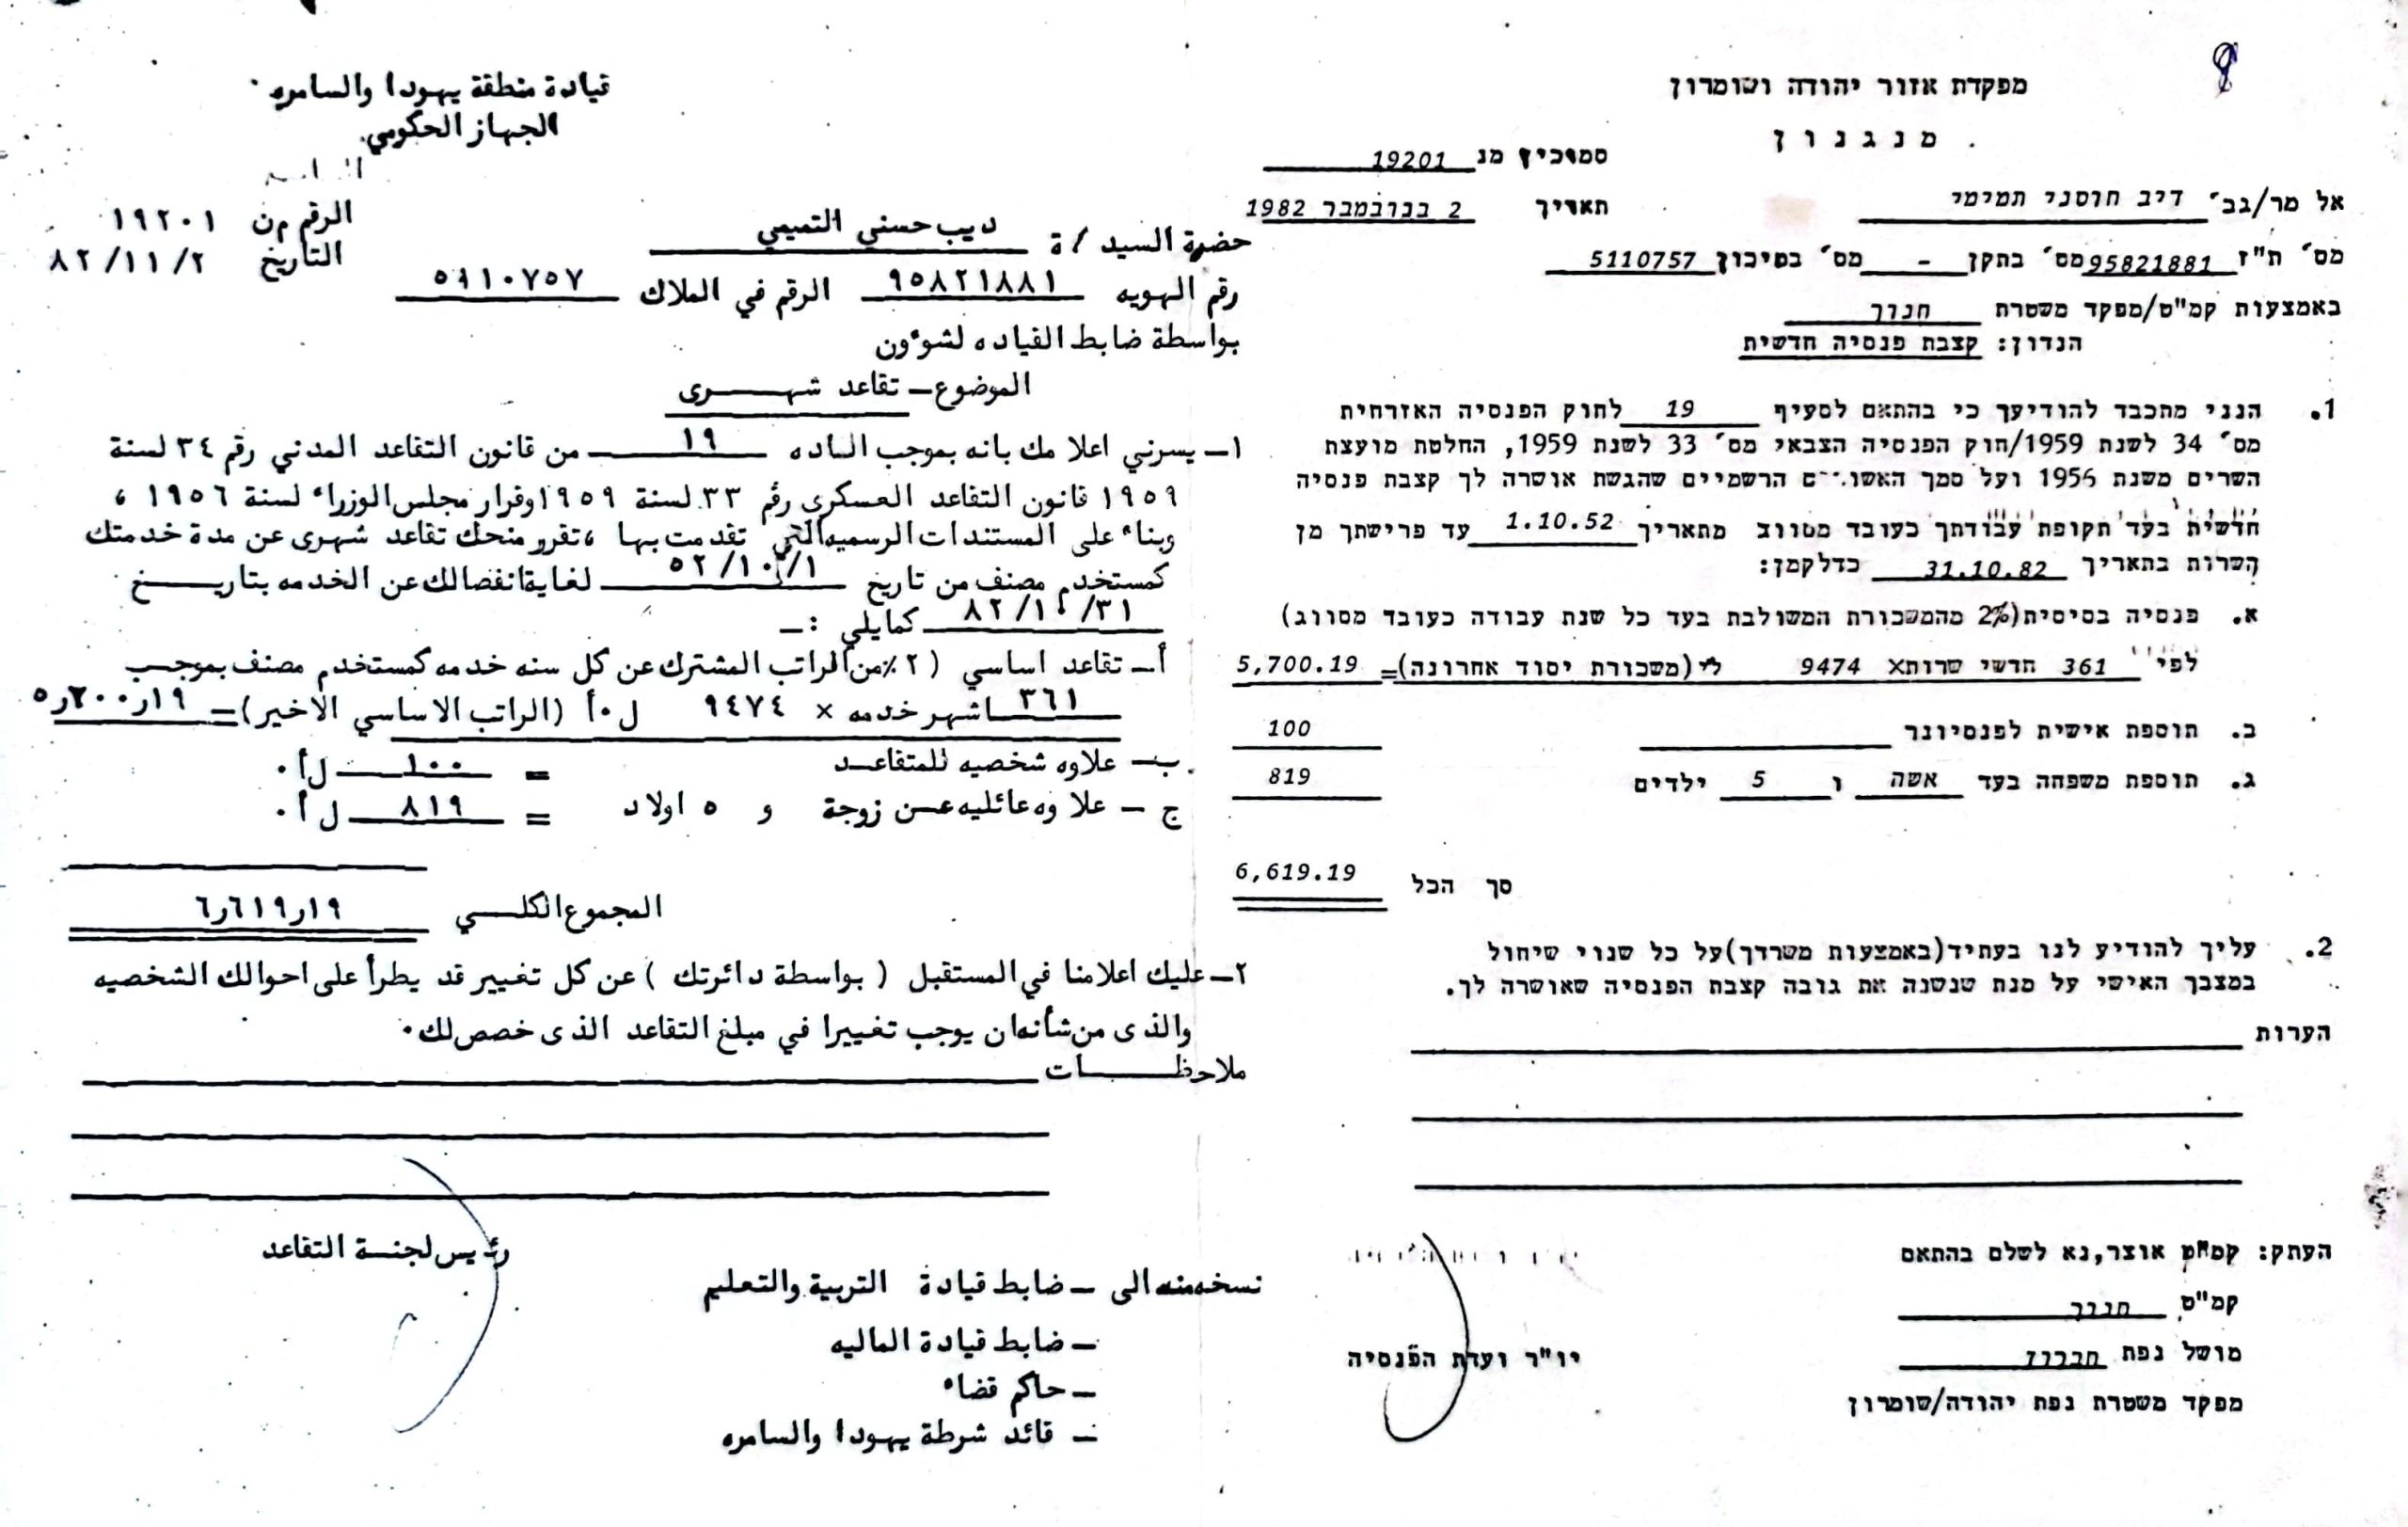 מפקדת אזור יהודה ושומרון
מנגנון
סמוכין מנ 19201
תאריך 2 בנובמבר 1982
אל מר/גב׳ דיב חוסני תמימי
מס׳ ת"ז 95821881 מס׳ בתקן - מס׳ בסיכון 5110757
באמצעות קמ"ט/מפקד משטרת חנוך
הנדון: קצבת פנסיה חדשית
1. הנני מתכבד להודיעך כי בהתאם לסעיף 19 לחוק הפנסיה האזרחית
מס׳ 34 לשנת 1959/חוק הפנסיה הצבאי מס׳ 33 לשנת 1959, החלטת מועצת
השרים משנת 1956 ועל סמך הרשמיים שהגשת אושרה לך קצבת פנסיה
חדשית בעד תקופת עבודתך כעובד מסווג מתאריך 1.10.52 עד פרישתך מן
השרות בתאריך 31.10.82 כדלקמן:
א. פנסיה בסיסית (2% מהמשכורת המשולבת בעד כל שנת עבודה כעובד מסווג)
לפי 361 חדשי שרות× 9474 לי (משכורת יסוד אחרונה)= 5,700.19
ב. תוספת אישית לפנסיונר 100
ג. תוספת משפחה בעד אשה ו 5 ילדים 819
סך הכל 6,619.19
2. עליך להודיע לנו בעתיד (באמצעות משרדך) על כל שנוי שיחול
במצבך האישי על מנת שנשנה את גובה קצבת הפנסיה שאושרה לך.
הערות
העתק: קמ"ט אוצר, נא לשלם בהתאם
קמ"ט חנוך
מושל נפת חברון
מפקד משטרת נפת יהודה/שומרון
יו"ר ועדת הפנסיה
قيادة منطقة يهودا والسامره
الجهاز الحكومي
الرقم من ١٩٢٠١
التاريخ ٨٢/١١/٢
حضرة السيد /ة ديب حسني التميمي
رقم الهويه ٩٥٨٢١٨٨١ الرقم في الملاك ٥١١٠٧٥٧
بواسطة ضابط القياده لشوءون
الموضوع – تقاعد شهرى
١– يسرني اعلا مك بانه بموجب الماده ١٩ من قانون التقاعد المدني رقم ٣٤ لسنة
١٩٥٩ قانون التقاعد العسكرى رقم ٣٣ لسنة ١٩٥٩ وقرار مجلس الوزراء لسنة ١٩٥٦ ،
وبناء على المستندات الرسميه التي تقدمت بها ، تقرر منحك تقاعد شهرى عن مدة خدمتك
كمستخدم مصنف من تاريخ ٥٢/١٠/١ لغاية انفصالك عن الخدمه بتاريخ
٨٢/١٠/٣١ كمايلي :–
أ – تقاعد اساسي (٢٪ من الراتب المشترك عن كل سنه خدمه كمستخدم مصنف بموجب
٣٦١ اشهر خدمه × ٩٤٧٤ ل٠أ (الراتب الاساسي الاخير) = ٥ر٢٠٠ر١٩
ب – علاوه شخصيه للمتقاعد = ١٠٠ ل أ٠
ج – علا وه عائليه عن زوجة و ٥ اولاد = ٨١٩ ل أ٠
المجموع الكلي ٦ر٦١٩ر١٩
٢– عليك اعلامنا في المستقبل ( بواسطة دائرتك ) عن كل تغيير قد يطرأ على احوالك الشخصيه
والذى من شأنه ان يوجب تغييرا في مبلغ التقاعد الذى خصص لك٠
ملاحظات
رئيس لجنة التقاعد
نسخه منه الى – ضابط قيادة التربية والتعليم
– ضابط قيادة الماليه
– حاكم قضاء
– قائد شرطة يهودا والسامره